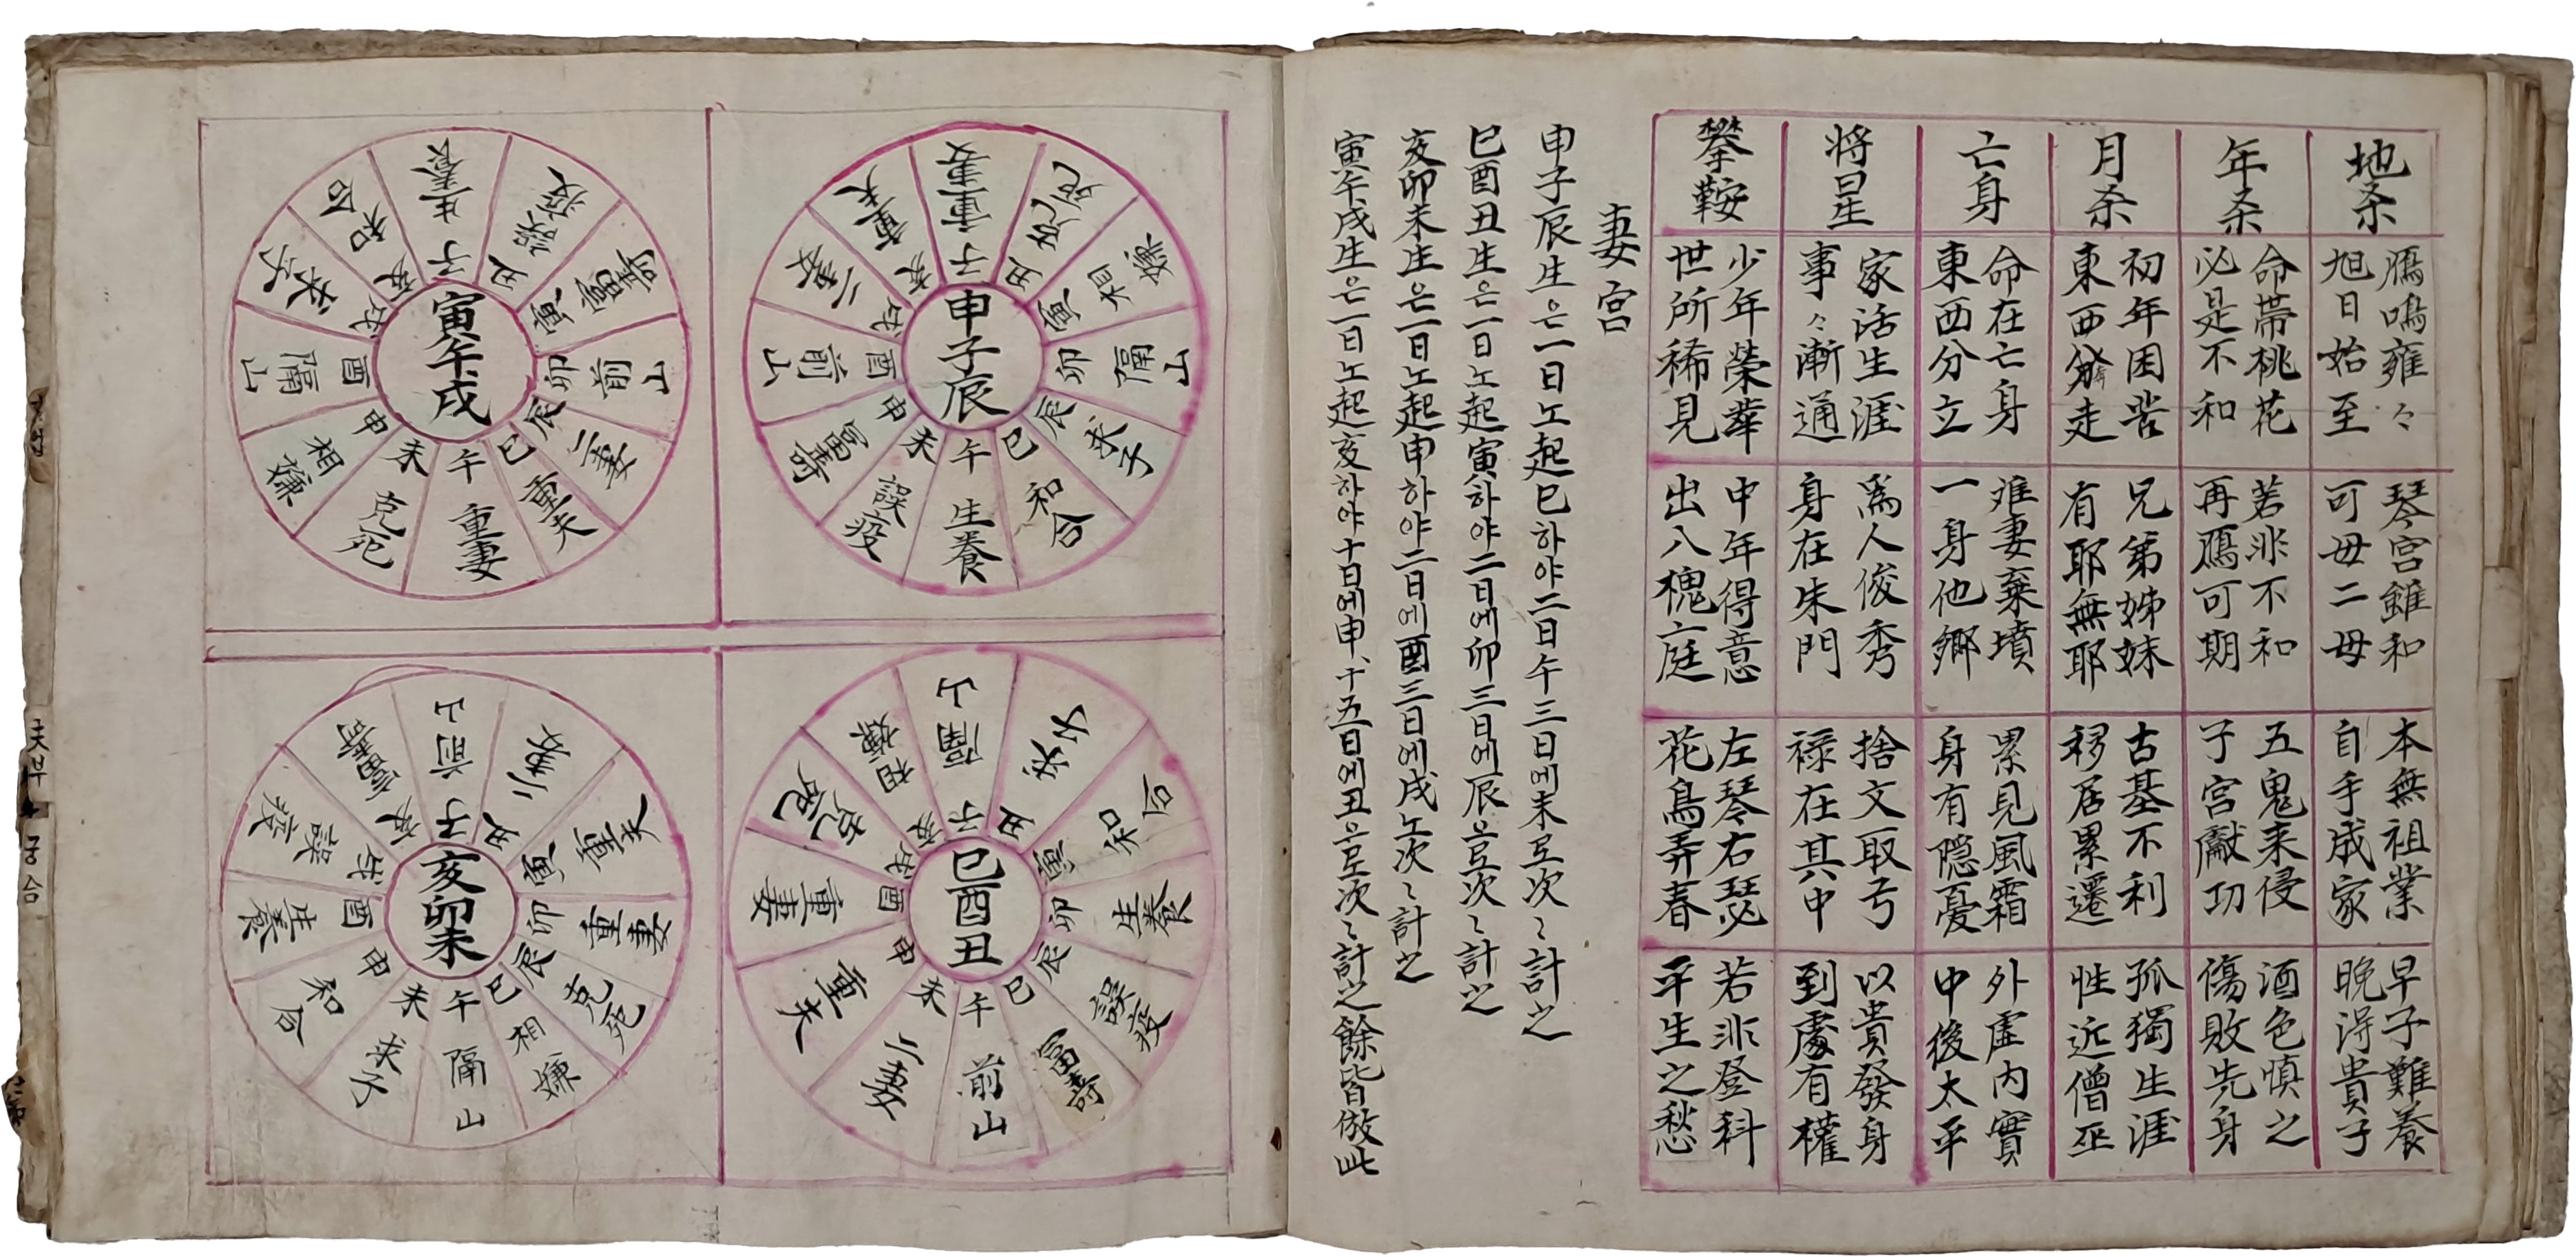 地杀
鴈鳴雍々
旭日始至
琴宮雖和
可毋二毋
本無祖業
自手成家
早子難養
晩淂貴子
年杀
命帯桃花
必是不和
若非不和
再鴈可期
五鬼来侵
子宮獻功
酒色愼之
傷敗先身
月杀
初年困苦
東西分走
兄弟姊妹
有耶無耶
古基不利
移居累遷
孤獨生涯
性近僧巫
亡身
命在亡身
東西分立
难妻棄墳
一身他鄉
累見風霜
身有隠憂
外虛内實
中後太平
將星
家活生涯
事々漸通
爲人俊秀
身在朱門
捨文取弓
禄在其中
以貴發身
到處有權
攀鞍
少年榮華
世所稀見
中年得意
出八槐庭
左琴右瑟
花鳥弄春
若非登科
平生之愁
妻宮
申子辰生은一日노起巳하야二日午三日에未로次〻計之
巳酉丑生은一日노起寅하야二日에卯三日에辰으로次〻計之
亥卯未生은一日노起申하야二日에酉三日에戌노次〻計之
寅午戌生은一日노起亥하야十日에申、十五日에丑으로次〻計之餘皆倣此
申子辰
子 重妻
丑 克死
寅 相嫌
卯 隔山
辰 求子
巳 和合
午 生養
未 誤疫
申 富壽
酉 前山
戌 二妻
亥 重夫
寅午戌
子 生養
丑 誤疫
寅 富壽
卯 前山
辰 二妻
巳 重夫
午 重妻
未 克死
申 相嫌
酉 隔山
戌 求子
亥 和合
巳酉丑
子 隔山
丑 求子
寅 和合
卯 生養
辰 誤疫
巳 富壽
午 前山
未 二妻
申 重夫
酉 重妻
戌 克死
亥 相嫌
亥卯未
子 前山
丑 二妻
寅 重夫
卯 重妻
辰 克死
巳 相嫌
午 隔山
未 求子
申 和合
酉 生養
戌 誤疫
亥 富壽
夫부
궁合